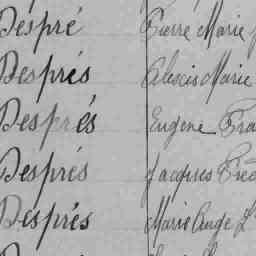 Despré Pierre Marie
Després Alexis Marie
Després Eugène Fra
Després Jacques Fréd
Després Marie Ange L